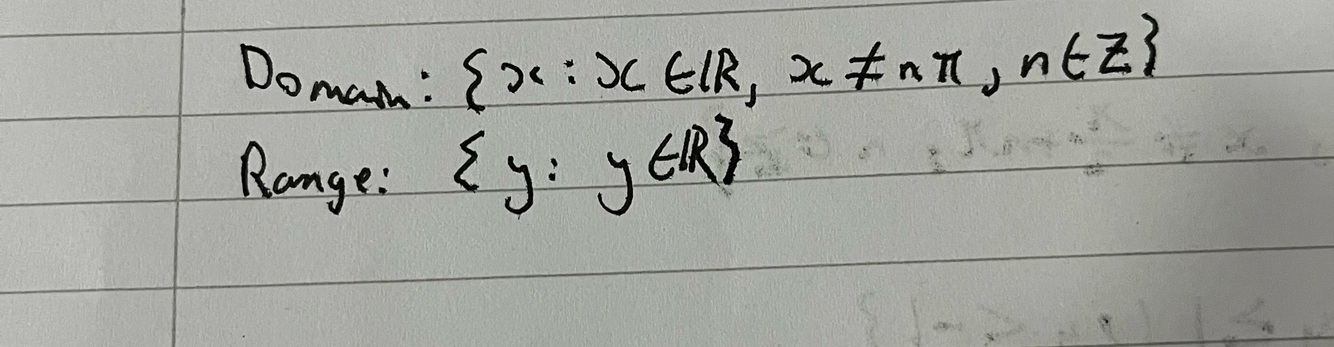 Domain: {x : x ∈ ℝ, x ≠ nπ, n ∈ Z}
Range: {y : y ∈ ℝ}